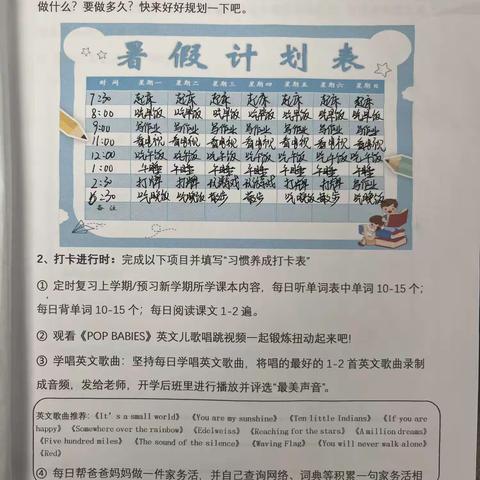 做什么？要做多久？快来好好规划一下吧。
暑假计划表
时间 星期一 星期二 星期三 星期四 星期五 星期六 星期日
7:30 起床 起床 起床 起床 起床 起床 起床
8:00 吃早饭 吃早饭 吃早饭 吃早饭 吃早饭 吃早饭 吃早饭
9:00 写作业 写作业 写作业 写作业 写作业 写作业 写作业
11:00 看电视 看电视 看电视 看电视 看电视 看电视 看电视
12:00 吃午饭 吃午饭 吃午饭 吃午饭 吃午饭 吃午饭 吃午饭
1:00 午睡 午睡 午睡 午睡 午睡 午睡 午睡
2:30 打牌 打牌 玩游戏 玩游戏 打牌 打牌 写作业
6:30 吃晚饭 吃晚饭 散步 散步 吃晚饭 散步 吃晚饭
备注
2、打卡进行时：完成以下项目并填写“习惯养成打卡表”
① 定时复习上学期/预习新学期所学课本内容，每日听单词表中单词 10-15 个；
每日背单词 10-15 个；每日阅读课文 1-2 遍。
② 观看《POP BABIES》英文儿歌唱跳视频一起锻炼扭动起来吧!
③ 学唱英文歌曲：坚持每日学唱英文歌曲，将唱的最好的 1-2 首英文歌曲录制
成音频，发给老师，开学后班里进行播放并评选“最美声音”。
英文歌曲推荐:《It's a small world》 《You are my sunshine》 《Ten little Indians》 《If you are
happy》 《Somewhere over the rainbow》 《Edelweiss》 《Reaching for the stars》 《A million dreams》
《Five hundred miles》 《The sound of the silence》 《Waving Flag》 《You will never walk alone》
《Red》
④ 每日帮爸爸妈妈做一件家务活，并自己查询网络、词典等积累一句家务活相